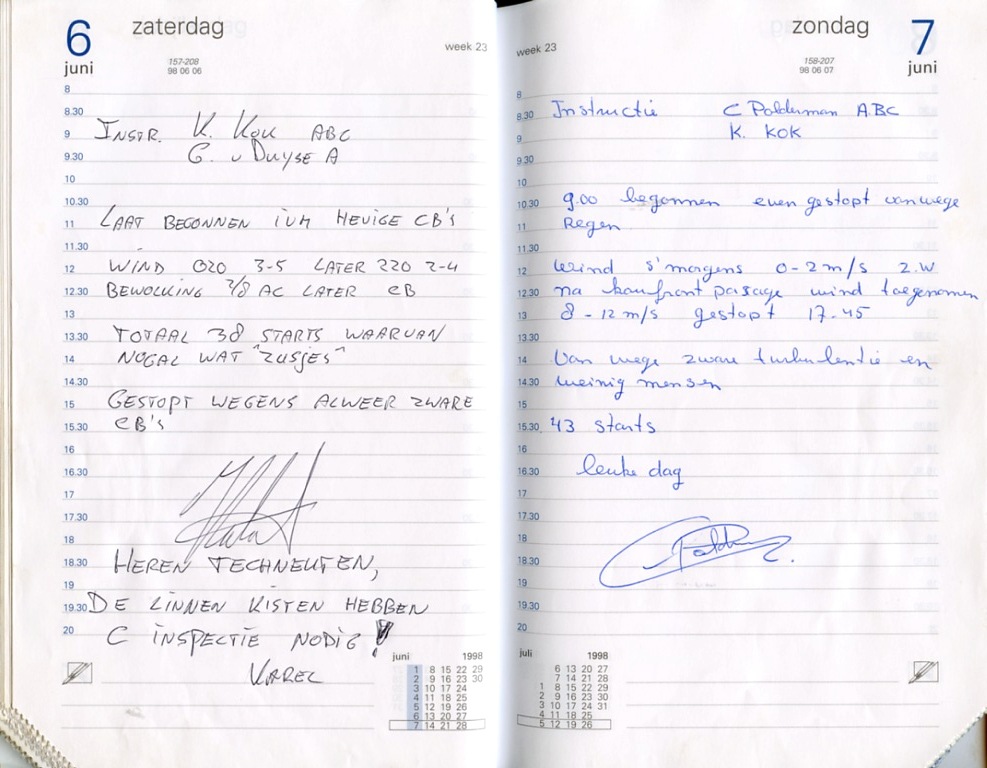 6 zaterdag
juni
week 23
157-208
98 06 06
8
8.30
9 INSTR. K. KOK ABC
G. v DUYSE A
9.30
10
10.30
11 LAAT BEGONNEN IVM HEVIGE CB'S
11.30
12 WIND 020 3-5 LATER 220 2-4
12.30 BEWOLKING 7/8 AC LATER CB
13
13.30 TOTAAL 38 STARTS WAARVAN
14 NOGAL WAT "ZUSJES"
14.30
15 GESTOPT WEGENS ALWEER ZWARE
15.30 CB'S
16
16.30
17
17.30
18
18.30 HEREN TECHNEUTEN,
19
19.30 DE LINNEN KISTEN HEBBEN
20 C INSPECTIE NODIG!
KAREL
juni 1998
1 8 15 22 29
2 9 16 23 30
3 10 17 24
4 11 18 25
5 12 19 26
6 13 20 27
7 14 21 28
zondag 7
juni
week 23
158-207
98 06 07
8
8.30 Instructie C Polderman A.BC
9 K. KOK
9.30
10
10.30 9.00 begonnen even gestopt vanwege
11 Regen
11.30
12 Wind s'morgens 0-2 m/s Z.W
12.30 na koufront pasage wind toegenomen
13 8-12 m/s gestopt 17.45
13.30
14 Van wege zware turbulentie en
14.30 weinig mensen
15
15.30 43 starts
16
16.30 leuke dag
17
17.30
18
18.30
19
19.30
20
juli 1998
6 13 20 27
7 14 21 28
1 8 15 22 29
2 9 16 23 30
3 10 17 24 31
4 11 18 25
5 12 19 26